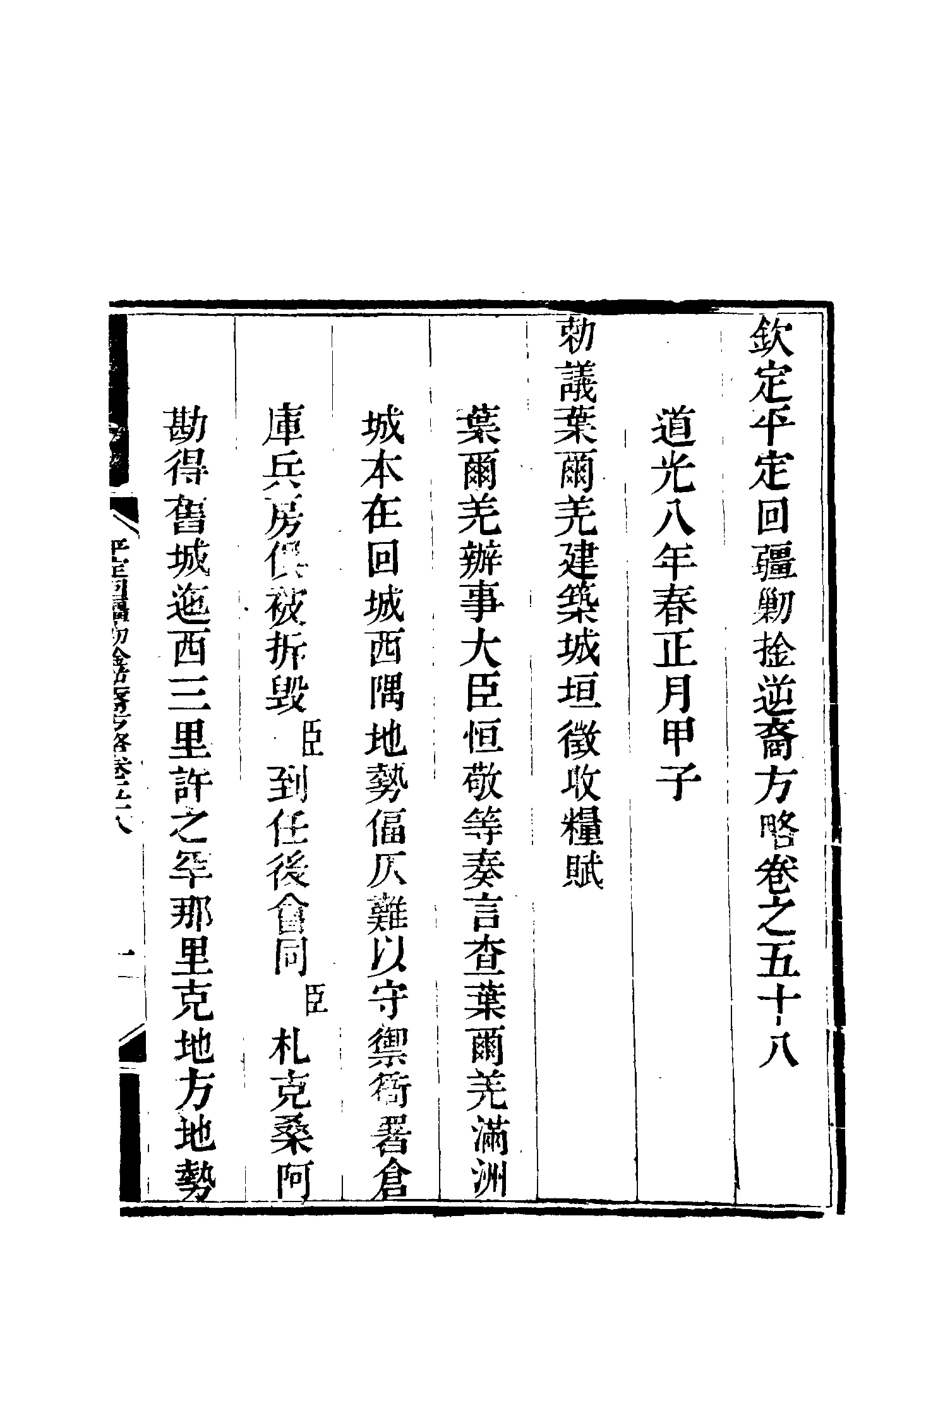 欽定平定回疆剿捦逆裔方略卷之五十八
道光八年春正月甲子
勅議葉爾羌建築城垣徵收糧賦
葉爾羌辦事大臣恒敬等奏言查葉爾羌滿洲
城本在回城西隅地勢偪仄難以守禦衙署倉
庫兵房俱被拆毀臣到任後會同臣札克桑阿
勘得舊城迤西三里許之罕那里克地方地勢
平定回疆剿捦逆裔方略卷五十八
一